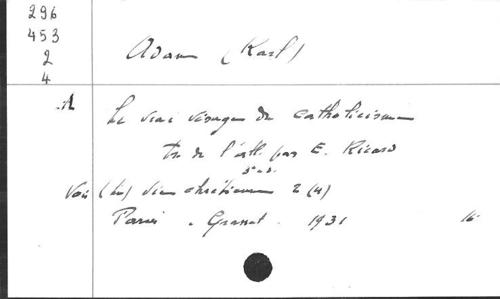 296
453
2
4
Adam (Karl)
A
Le vrai visage du catholicisme
tr. de l'all. par E. Ricard
5e éd.
Voir (La) vie chrétienne 2 (4)
Paris. Grasset. 1931 16